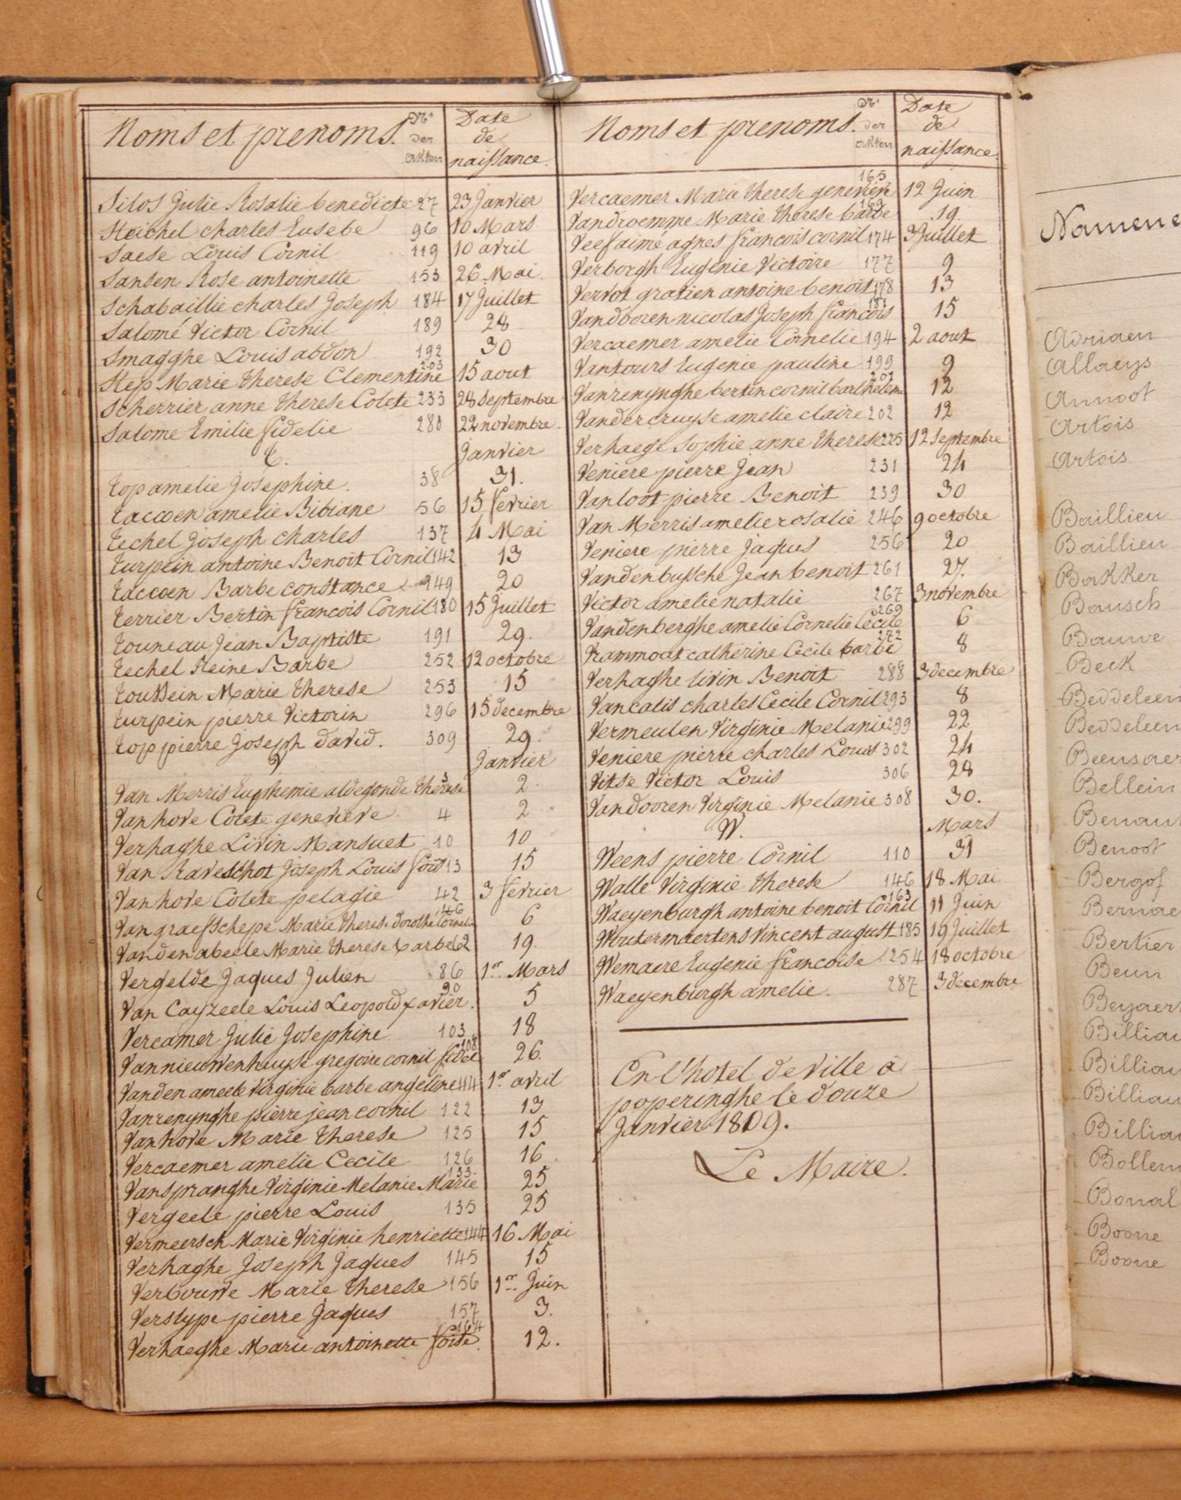 Noms et prenoms. N.º der akten Date de naissance
Silos Julie Rosalie benedicte 27 23 Janvier
charles Eusebe 96 10 Mars
Saese Louis Cornil 119 10 avril
Sansen Rose antoinette 153 26 Mai
Schabaillie charles Joseph 184 17 Juillet
Salomé Victor Cornil 189 28
Smagghe Louis abdon 192 30
Marie Therese Clementine 203 15 aout
Scherrier anne Therese Colete 233 28 Septembre
Salome Emilie fidelie 280 22 novembre
T. Janvier
Top amelie Josephine. 38 31.
Taccoen amelie Bibiane 56 15 fevrier
Techel Joseph charles 137 4 Mai
Turpein antoine Benoit Cornil 142 13
Taccoen Barbe constance 149 20
Terrier Bertin francois Cornil 180 15 Juillet
Touneau Jean Baptiste 191 29.
Techel Reine Barbe 252 12 octobre
Toussein Marie Therese 253 15
Turpein pierre Victorin 296 15 decembre
Top pierre Joseph david. 309 29.
V Janvier
Van Merris Euphemie aldegonde Therese 3 2.
Vanhove Colete genevieve 4 2
Verhaghe Livin Mansuet 10 10
Van Raveschot Joseph Louis fois 13 15
Vanhove Colete pelagie 42 3 fevrier
Van graefschepe Marie Therese dorothé Cornelie 46 6
Vandenabeele Marie Therese barbe 62 19.
Vergelde Jaques Julien 86 1er Mars
Van Cayzeele Louis Leopold xavier. 90 5
Vercamer Julie Josephine 103 18
Van nieuwenhuyse gregoire cornil fidel 108 26
Vanden ameele Virginie barbe angeline 114 1er avril
Vanrenynghe pierre jean cornil 122 13
Vanhove Marie Therese 125 15
Vercaemer amelie Cecile 126 16
Vanspranghe Virginie Melanie Marie 133 25
Vergeele pierre Louis 135 25
Vermeersch Marie Virginie henriette 144 16 Mai
Verhaghe Joseph Jaques 145 15
Marie Therese 156 1er Juin
Verstype pierre Jaques 157 3.
Verhaeghe Marie antoinette foise. 164 12.
Noms et prenoms. N.º der akten Date de naissance
Vercaemer Marie Therese genevieve 165 12 Juin
Vandroemme Marie Therese barbe 169 19.
Veefaime agnes francois cornil 174 3 Juillet
Verborgh Eugenie Victoire 177 9
Vervot gratien antoine benoit 178 13
Vandooren nicolas Joseph francois 181 15
Vercaemer amelie Cornelie 194 2 aout
Vantours Eugenie pauline 199 9
Vanrenynghe bertin cornil barthelem 201 12
Vandercruyse amelie claire 202 12
Verhaege Sophie anne Therese 225 12 Septembre
Veniere pierre Jean 231 24
Vanloot pierre Benoit 239 30
Van Merris amelie rosalie 246 9 octobre
Veniere pierre Jaques 256 20
Vandenbussche Jean benoit 261 27.
Victor amelie natalie 267 3 novembre
Vandenberghe amelie Cornelie Cecile 269 6
Vrammout catherine Cecile barbe 272 8
Verhaghe livin Benoit 288 3 decembre
Vancalis charles Cecile Cornil 293 8
Vermeulen Virginie Melanie 299 22
Veniere pierre charles Louis 302 24
Vitse Victor Louis 306 28
Vandooren Virginie Melanie 308 30.
W. Mars
Weens pierre Cornil 110 31
Walle Virginie Therese 146 18 Mai
Waeyenburgh antoine benoit Cornil 163 11 Juin
Woutermaertens Vincent august 185 19 Juillet
Wemaere Eugenie francoise 254 18 octobre
Waeyenburgh amelie. 287 3 decembre
En l'hotel de Ville à
poperinghe le douze
Janvier 1809.
Le Maire.
Adriaen
Allaeys
Annoot
Artois
Artois
Baillieu
Baillieu
Bakker
Bausch
Bauwe
Beck
Beddeleem
Beddeleem
Bellein
Benoot
Bergof
Bertier
Beun
Bonal
Boone
Boone